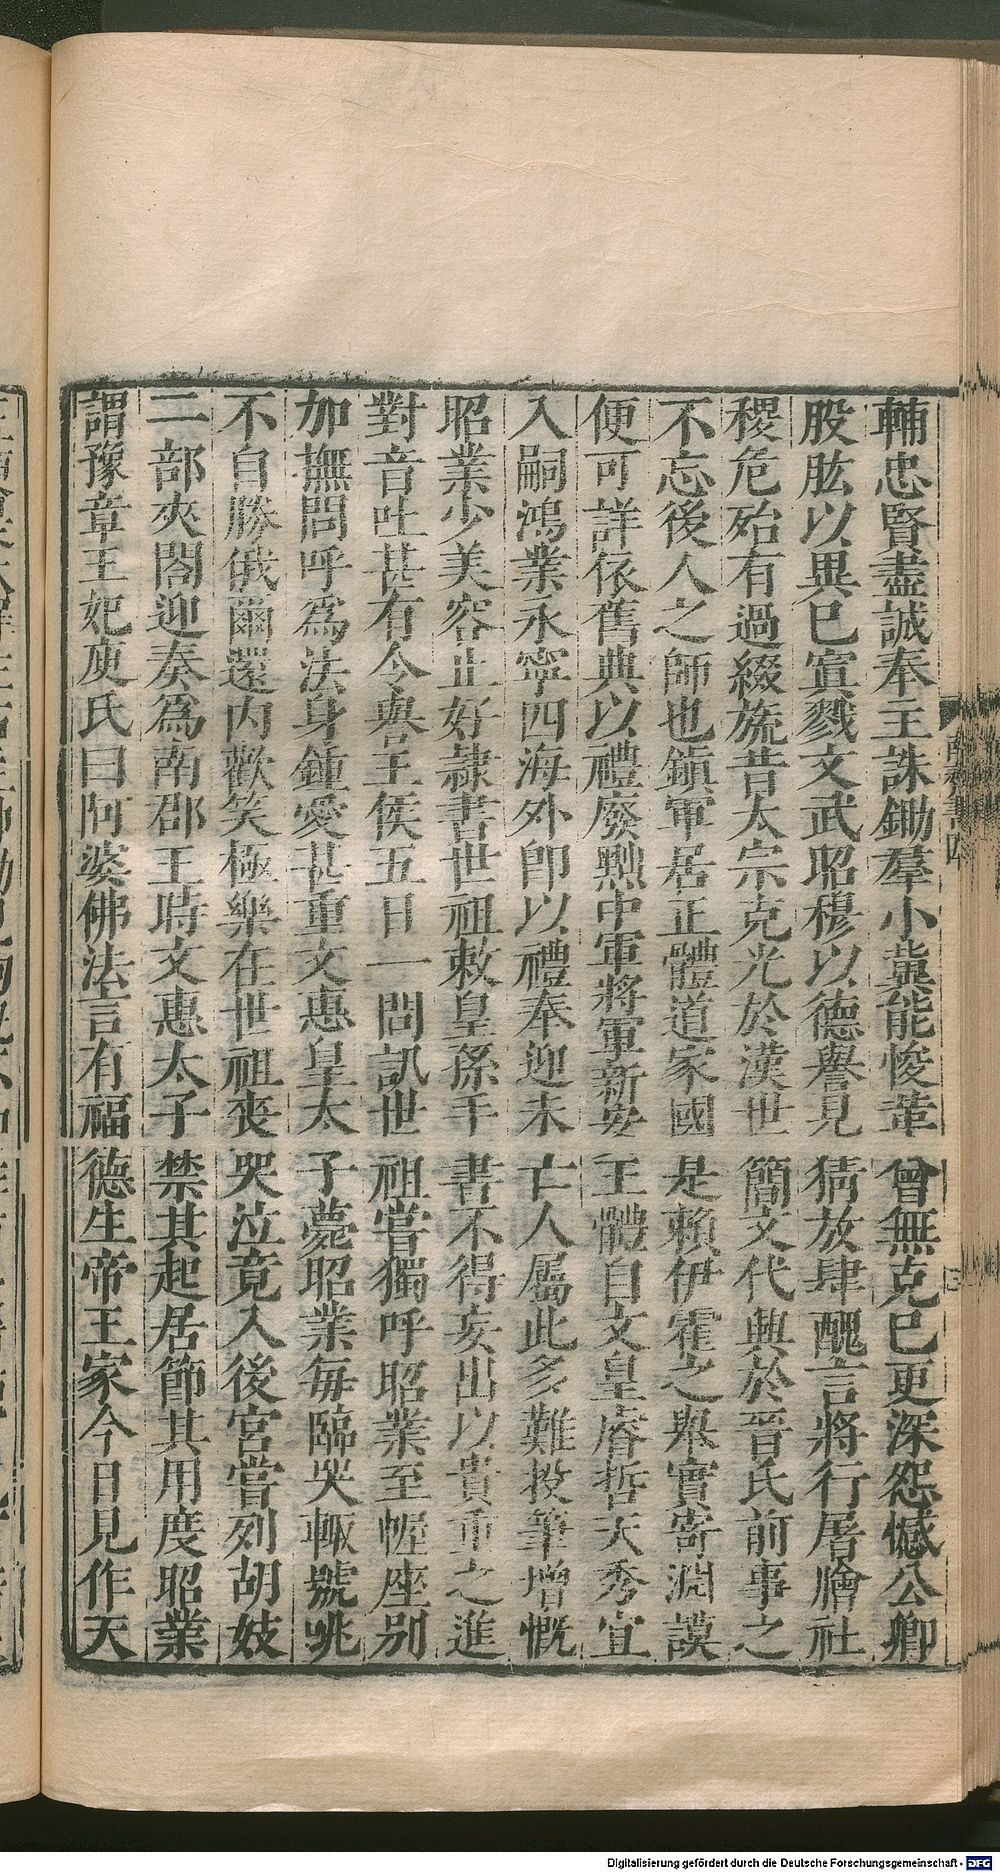 輔忠賢盡誠奉主誅鋤羣小冀能悛革曾無克已更深怨憾公卿
股肱以異已寘戮文武昭穆以德譽見猜放肆醜言將行屠膾社
稷危殆有過綴旒昔太宗克光於漢世簡文代興於晉氏前事之
不忘後人之師也鎮軍居正體道家國是賴伊霍之舉實寄淵謨
便可詳依舊典以禮廢黜中軍將軍新安王體自文皇睿哲天秀宜
入嗣鴻業永寧四海外卽以禮奉迎未亡人屬此多難投筆增慨
昭業少美容止好隸書世祖敕皇孫手書不得妄出以貴重之進
對音吐甚有令譽王侯五日一問訊世祖嘗獨呼昭業至幄座别
加撫問呼爲法身鍾愛甚重文惠皇太子薨昭業每臨哭輒號咷
不自勝俄爾還内歡笑極樂在世祖喪哭泣竟入後宮嘗列胡妓
二部夾閤迎奏爲南郡王時文惠太子禁其起居節其用度昭業
謂豫章王妃庾氏曰阿婆佛法言有福德生帝王家今日見作天
Digitalisierung gefördert durch die Deutsche Forschungsgemeinschaft - DFG